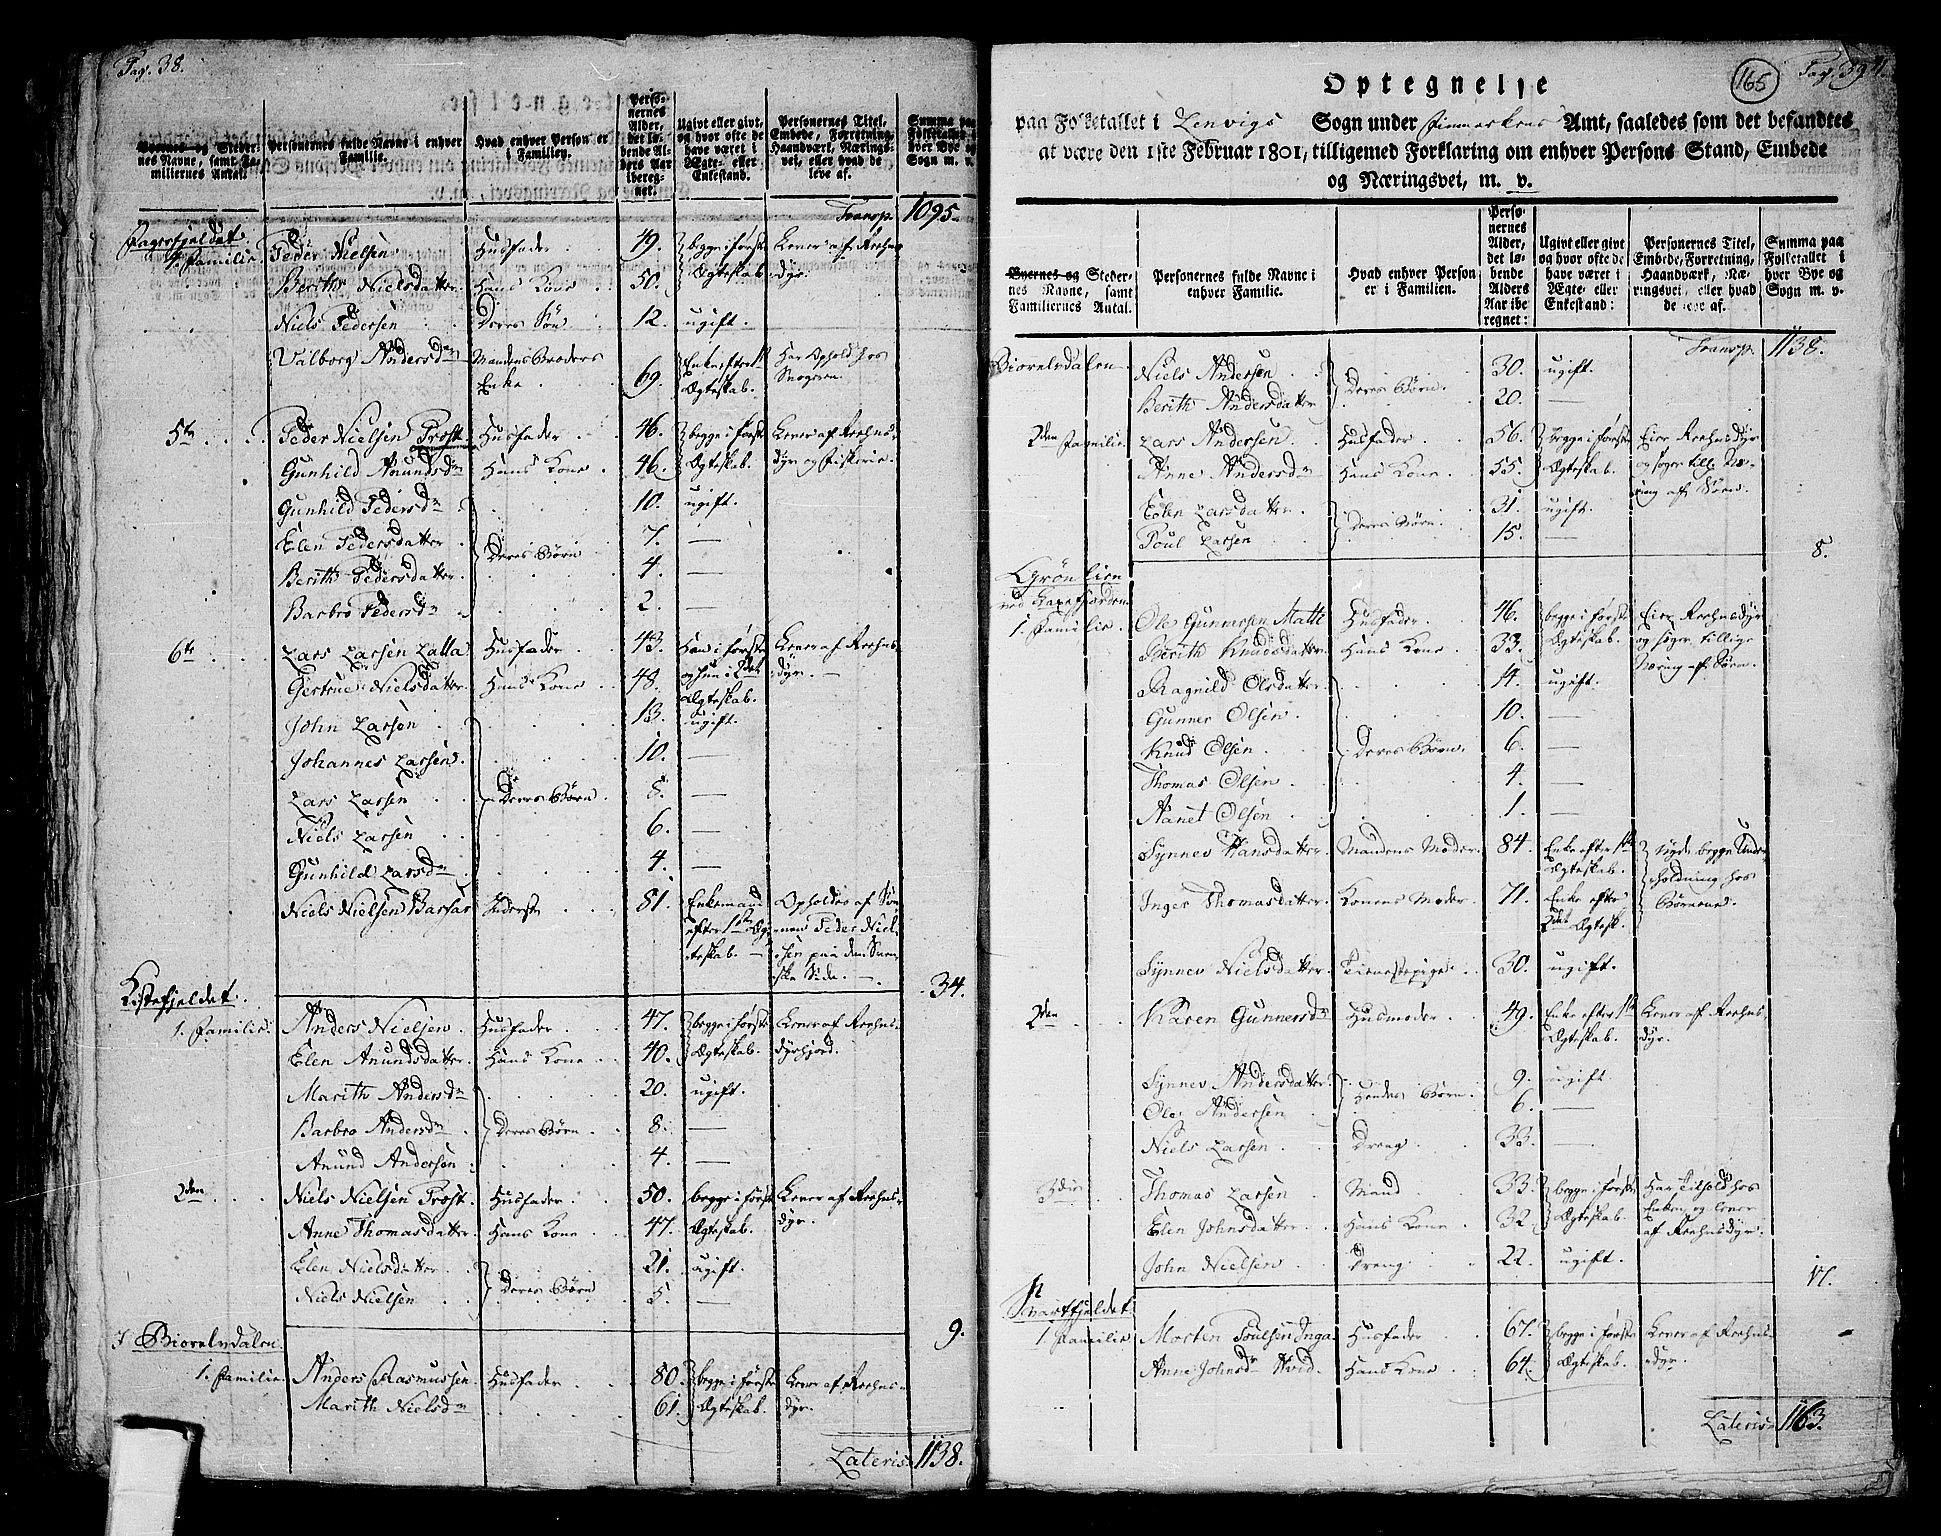 Pag. 38.
Byernes og Steder-
nes Navne, samt Fa-
miliernes Antal.
Personernes fulde Navne i enhver
Familie.
Hvad enhver Person er
i Familien.
Perso-
nernes
Alder,
det lø-
bende Al-
ders Aar
iberegnet.
Ugivt eller givt,
og hvor ofte de
have været i
Ægte- eller
Enkestand.
Personernes Titel,
Embede, Forretning,
Haandværk, Nærings-
vei, eller hvad de
leve af.
Summa paa
Folketallet i
hver Bye og
Sogn m. v.
Transp. 1095.
Fagerfjeldet.
4de Familie Peder Nielsen Husfader 49. begge i første Lever af Reehns-
Berithe Nielsdatter Hans Kone 50. Ægteskab. dyr.
Niels Pedersen Deres Søn 12. ugift.
Valborg Andersdr Mandens Broders 69. Enke efter 1ste Har Ophold hos
Enke Ægteskab.
5te Peder Nielsen Prost Husfader 46. begge i første Lever af Reehns-
Gunhild Anundsdr Hans Kone 46. Ægteskab. dyr og Fiskerie.
Gunhild Pedersdr 10. ugift.
Elen Pedersdatter Deres Børn 7. —
Berith Pedersdatter 4. —
Barbro Pedersdr 2. —
6te Lars Larsen Latta Husfader 43. Han i første Lever af Reehns-
Gertrue Nielsdatter Hans Kone 48. og hun i 2det dyr.
Ægteskab.
John Larsen 13. ugift.
Johannes Larsen 10. —
Lars Larsen Deres Børn 8. —
Niels Larsen 6. —
Gunhild Larsdr 4. —
Niels Nielsen Barfar Inderste 81. Enkemand Opholdes af Søn-
efter 1ste Æg- nen Peder Niel-
teskab. sen paa den Sven-
ske Side.
34.
Kistefjeldet.
1. Familie Anders Nielsen Husfader 47. begge i første Lever af Reehns-
Elen Anundsdatter Hans Kone 40. Ægteskab. dyrhjord.
Marith Andersdr 20. ugift.
Barbro Andersdr Deres Børn 8. —
Anund Andersen 4. —
2den Niels Nielsen Prost Husfader 50. begge i første Lever af Reehns-
Anne Thomasdatter Hans Kone 47. Ægteskab. dyr.
Elen Nielsdatter 21. ugift.
Niels Nielsen Deres Børn 5. —
9.
I Biorelvdalen.
1. Familie Anders Rasmussen Husfader 80. begge i første Lever af Reehns-
Marith Nielsdr 61. Ægteskab. dyr.
Lateris 1138.
165
Pag. 39
Optegnelse
paa Folketallet i Lenvigs Sogn under Finmarkens Amt, saaledes som det befandtes
at være den 1ste Februar 1801, tilligemed Forklaring om enhver Persons Stand, Embede
og Næringsvei, m. v.
Byernes og Steder-
nes Navne, samt
Familiernes Antal.
Personernes fulde Navne i
enhver Familie.
Hvad enhver Person
er i Familien.
Perso-
nernes
Alder,
det lø-
bende
Alders
Aar ibe
regnet:
Ugivt eller givt
og hvor ofte de
have været i
Ægte- eller
Enkestand:
Personernes Titel,
Embede, Forretning,
Haandværk, Næ-
ringsvei, eller hvad
de leve af.
Summa paa
Folketallet i
hver Bye og
Sogn m. v.
Transp. 1138.
Biorelvdalen Niels Andersen 30. ugift.
Berith Andersdatter Deres Børn 20. —
2den Familie Lars Andersen Husfader 56. Begge i første Eier Reehnsdyr
Anne Andersdr Hans Kone 55. Ægteskab. og søger till. Næ-
Elen Larsdatter 31. ugift. ring af Søen.
Poul Larsen Deres Børn 15. —
8.
Grønlien
1. Familie Ole Gunnersen Matti Husfader 46. begge i første Eier Reehnsdyr
Berith Knudsdatter Hans Kone 33. Ægteskab. og søger tillige
Ragnild Olsdatter 14. ugift. Næring af Søen.
Gunner Olsen 10. —
Knud Olsen Deres Børn 6. —
Thomas Olsen 4. —
Nanet Olsen 1. —
Synnev Hansdatter Mandens Moder 84. Enke efter 1ste nyde begge Under-
Ægteskab. holdning hos
Inger Thomasdatter Konens Moder 71. Enke efter Børnene.
2det Ægtesk.
Synnev Nielsdatter Tienestepige 30. ugift.
2den Karen Gunnersdr Husmoder 49. Enke efter 1ste Lever af Reehns-
Ægteskab. dyr.
Synnev Andersdatter 9. ugift.
Ole Andersen Hendes Børn 6. —
Niels Larsen Dreng 33. —
3die Thomas Larsen Mand 33. begge i første Har Tilhold hos
Elen Johnsdatter Hans Kone 32. Ægteskab. Enken og lever
John Nielsen Dreng 22. ugift. af Reehnsdyr.
17.
Svartfjeldet
1 Familie Morten Poulsen Inga Husfader 67. begge i første Lever af Reehns-
Anne Johnsdr Hvid Hans Kone 64. Ægteskab. dyr.
Lateris 1163.